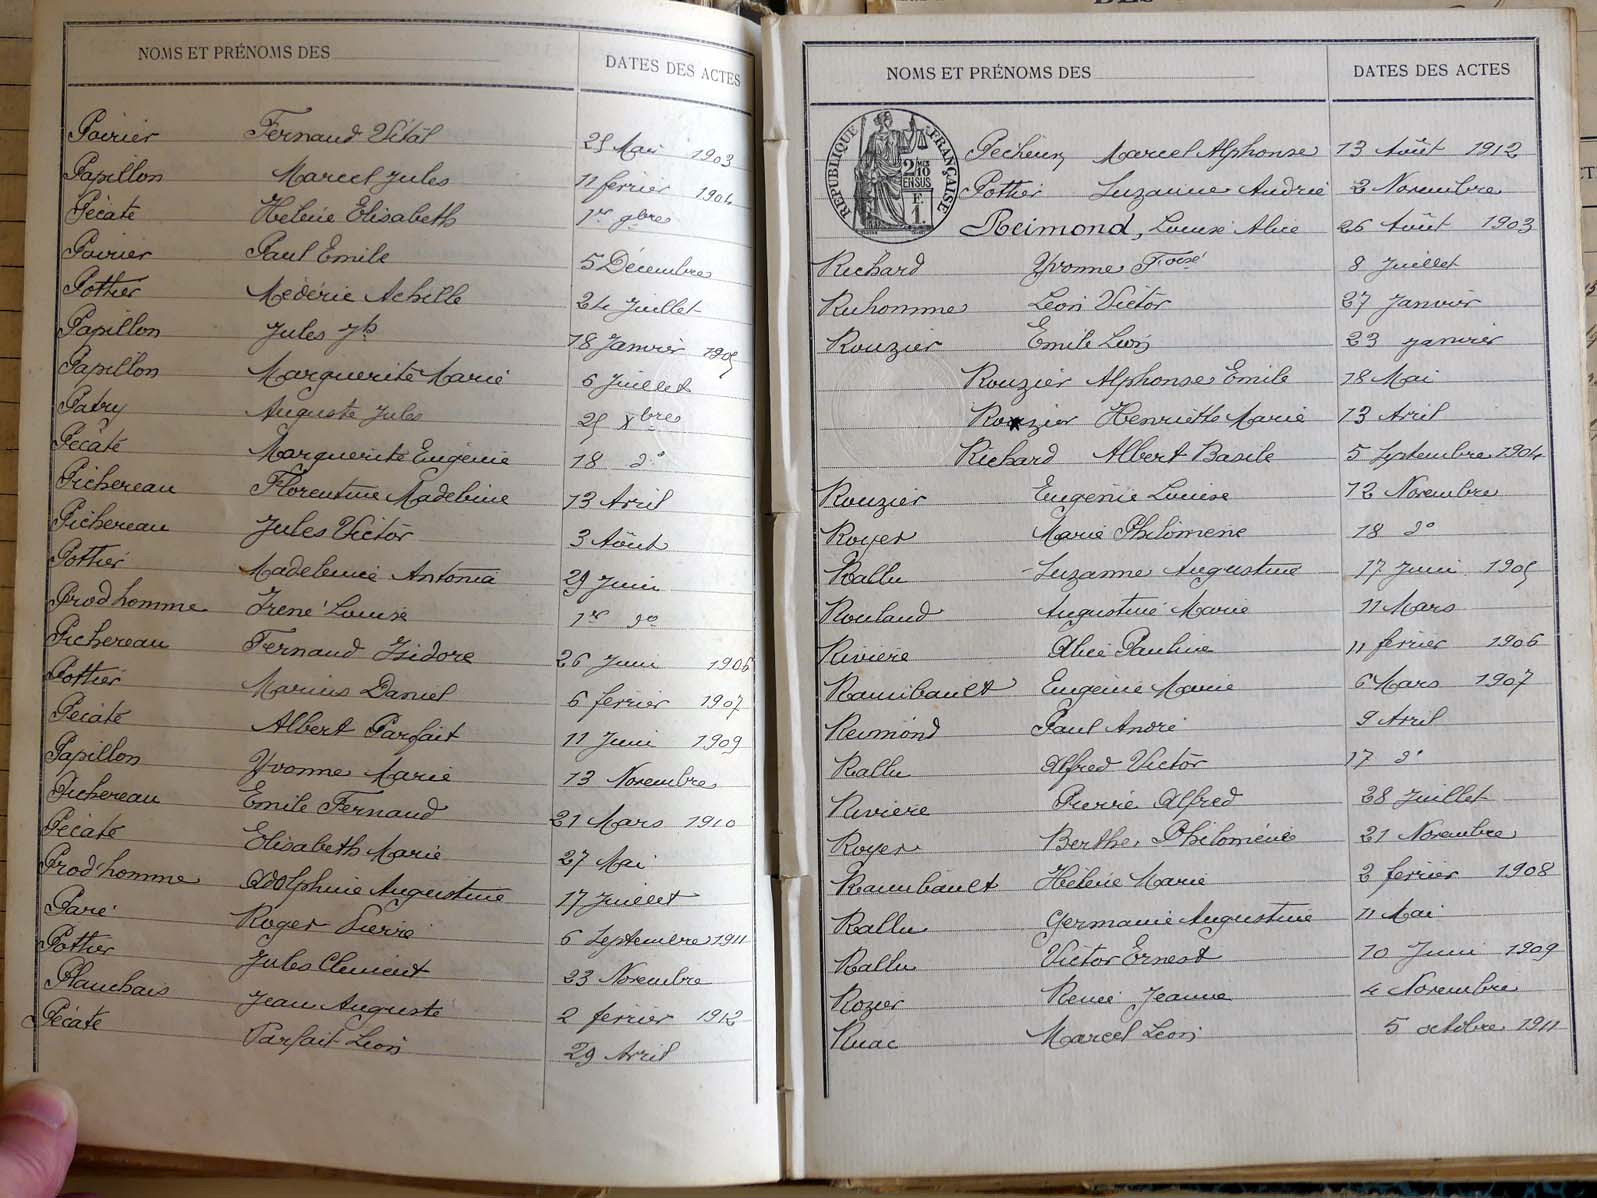 NOMS ET PRÉNOMS DES DATES DES ACTES
Poirier Fernand Vital 25 Mai 1903
Papillon Marcel Jules 11 février 1904
Pécate Hélène Elisabeth 1er 9bre
Poirier Paul Emile 5 Décembre
Pottier Médéric Achille 24 Juillet
Papillon Jules Jh 18 Janvier 1905
Papillon Marguerite Marie 6 Juillet
Patry Auguste Jules 25 Xbre
Pécate Marguerite Eugénie 18 do
Pichereau Florentine Madeleine 13 Avril
Pichereau Jules Victor 3 Août
Pottier Madeleine Antonia 29 Juin
Prodhomme Irène Louise 1er do
Pichereau Fernand Isidore 26 Juin 1906
Pottier Marius Daniel 6 février 1907
Pécate Albert Parfait 11 Juin 1909
Papillon Yvonne Marie 13 Novembre
Pichereau Emile Fernand 21 Mars 1910
Pécate Elisabeth Marie 27 Mai
Prodhomme Adolphine Augustine 17 Juillet
Paré Roger Pierre 6 Septembre 1911
Pottier Jules Clément 23 Novembre
Planchais Jean Auguste 2 février 1912
Pécate Parfait Léon 29 Avril
NOMS ET PRÉNOMS DES DATES DES ACTES
RÉPUBLIQUE FRANÇAISE
2/10 EN SUS
F. 1.
Marcel Alphonse 13 Août 1912
Pottier Suzanne Andrée 2 Novembre
Reimond, Louise Alice 26 Août 1903
Richard Yvonne 8 Juillet
Ruhomme Léon Victor 27 Janvier
Rouzier Emile Léon 23 janvier
Rouzier Alphonse Emile 18 Mai
Rouzier Henriette Marie 13 Avril
Richard Albert Basile 5 Septembre 1904
Rouzier Eugénie Louise 12 Novembre
Royer Marie Philomène 18 do
Rallu Suzanne Augustine 17 Juin 1905
Rouland Augustine Marie 11 Mars
Rivière Alice Pauline 11 février 1906
Rambault Eugénie Marie 6 Mars 1907
Reimond Paul André 9 Avril
Rallu Alfred Victor 17 do
Rivière Pierre Alfred 28 Juillet
Royer Berthe Philomène 21 Novembre
Rambault Hélène Marie 2 février 1908
Rallu Germaine Augustine 11 Mai
Rallu Victor Ernest 10 Juin 1909
Rozier Renée Jeanne 4 Novembre
Ruac Marcel Léon 5 octobre 1911